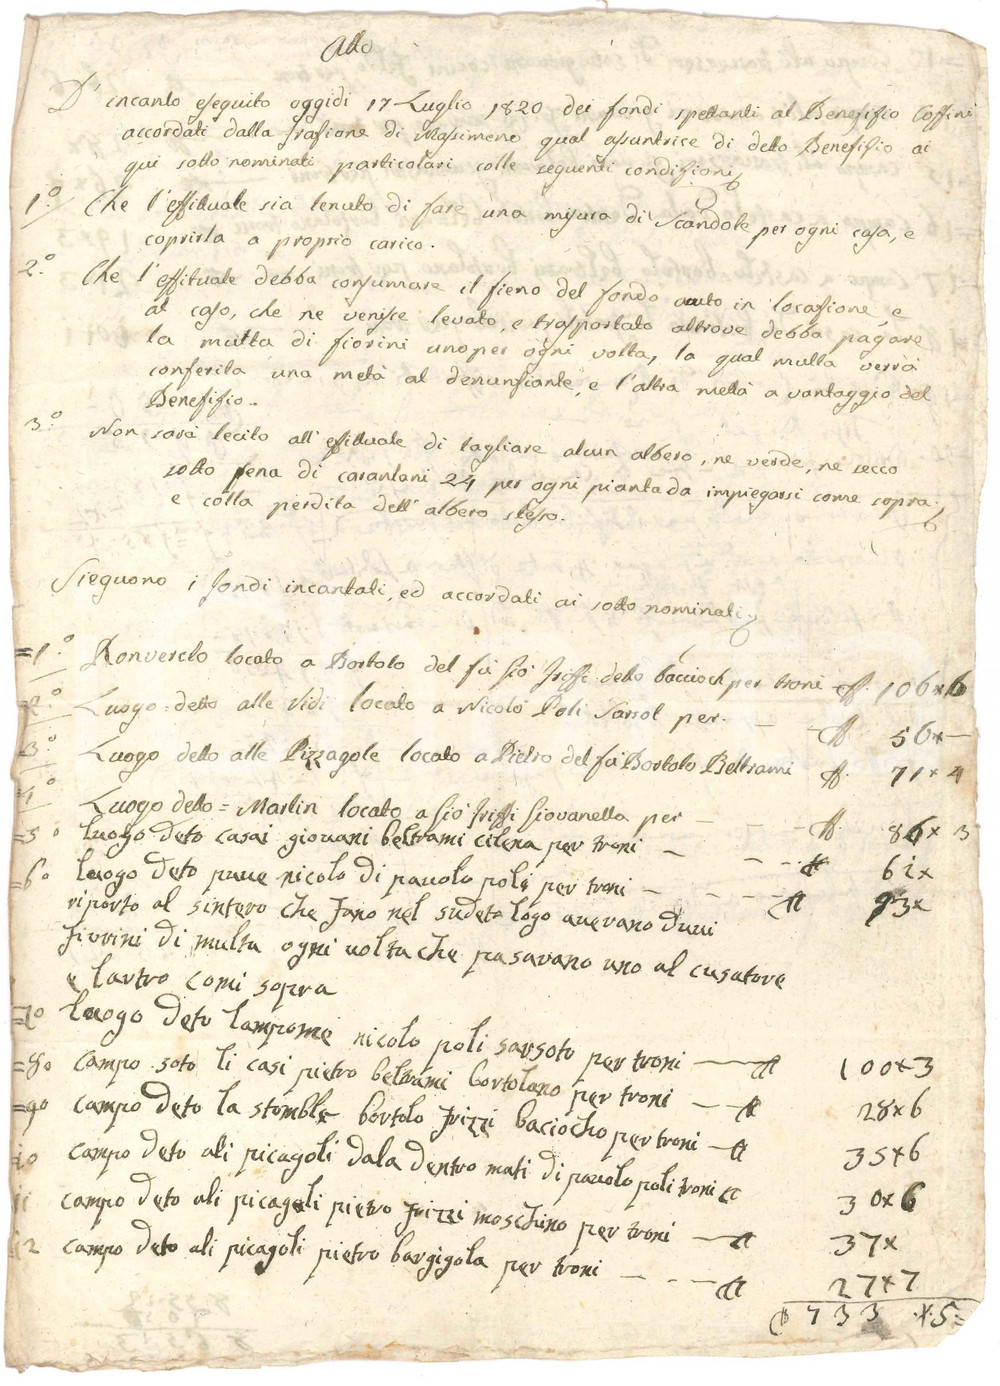 Atto
D'incanto eseguito oggidì 17 Luglio 1820 dei fondi spettanti al Benefisio Coffini
accordati dalla frasione di Massimeno qual assuntrice di detto Benefisio ai
qui sotto nominati particolari colle seguenti condisioni
1.º Che l'affittuale sia tenuto di fare una misura di Scandole per ogni casa, e
coprirla a proprio carico.
2.º Che l'affittuale debba consummare il fieno del fondo auto in locassione, e
al caso, che ne venisse levato, e trasportato altrove debba pagare
la multa di fiorini uno per ogni volta, la qual multa verrà
conferita una metà al denunsiante, e l'altra mettà a vantaggio del
Benefisio.
3.º Non sarà lecito all'affittuale di tagliare alcun albero, ne verde, ne secco
sotto pena di carantani 24 per ogni pianta da impiegarsi come sopra
e colla perdita dell'albero stesso.
Sieguono i fondi incantati, ed accordati ai sotto nominati
=1.º Ronverclo locato a Bortolo del fù Gió Friffi detto baccioch per troni 106x6
=2.º Luogo detto alle Vidi locato a Nicolò Poli Sarsol per 56x—
=3.º Luogo detto alle Pizzagole locato a Pietro del fù Bortolo Beltrami 71x4
4.º Luogo detto = Martin locato a Gió Friffi Giovanella per 86x3
=5º luogo deto casai giovani beltrami cilena per troni 61x
=6º luogo deto pune nicolo di pauolo poli per troni 93x
riporto al sintero che fano nel sudeto logo auevano duui
fiorini di multa ogni uolta che pasavano uno al cusatore
e lartro comi sopra
=7º luogo deto lampomei nicolo poli sarsoto per troni 100x3
=8º campo soto li casi pietro beltrami bortolano per troni 28x6
=9º campo deto la stomble bortolo frizzi baciocho per troni 35x6
10 campo deto ali picagoli dala dentro mati di pauolo poli troni 30x6
11 campo deto ali picagoli pietro frizzi moschino per troni 37x
12 campo deto ali picagoli pietro bargigola per troni 27x7
733 x5=